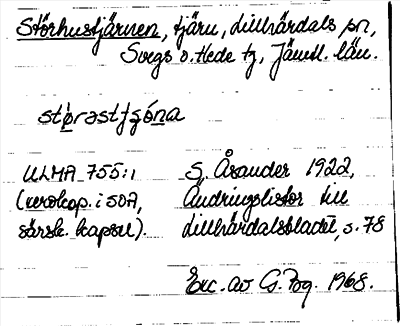 Störhustjärnen, tjärn, Lillhärdals sn,
Svegs o. Hede tg, Jämtl. län.
ULMA 755:1 S. Åsander 1922,
(xerokop. i SOA, Ändringslistor till
särsk. kapsel). Lillhärdalsbladet, s. 78
Exc. av G. 1968.